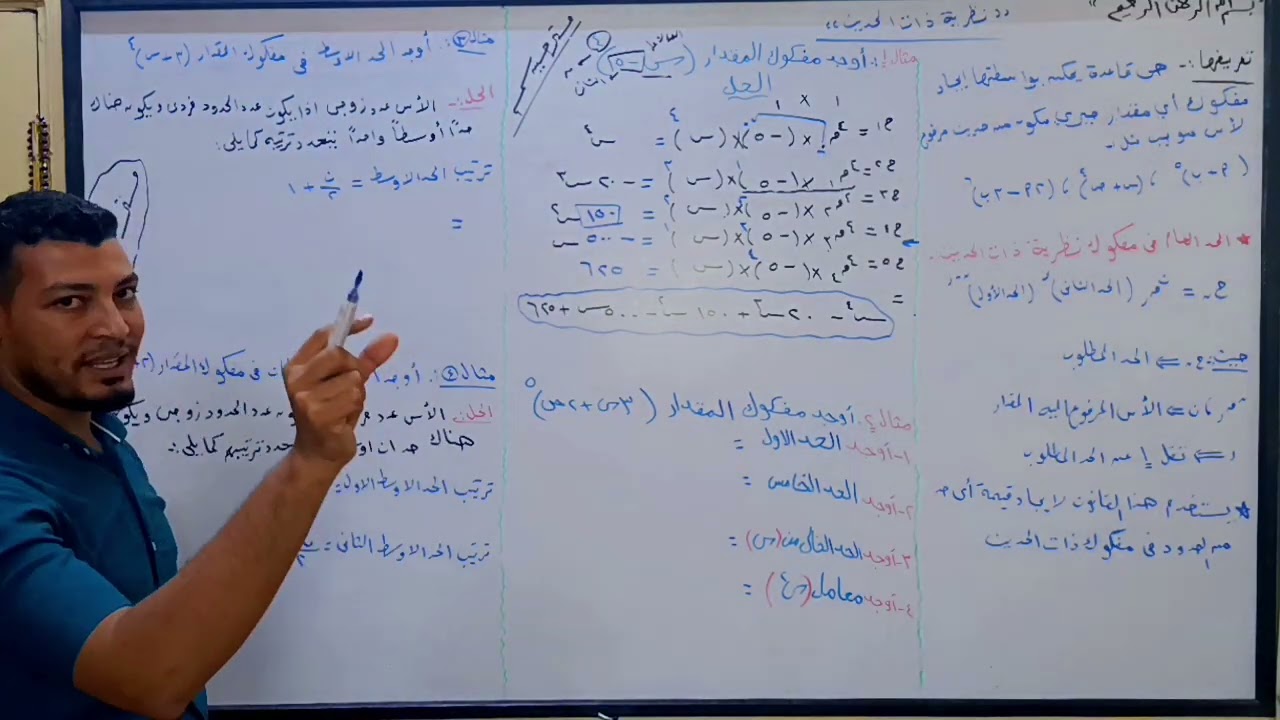 بسم الله الرحمن الرحيم
"نظرية ذات الحدين"
تعريفها:- هي قاعدة يمكن بواسطتها إيجاد
مفكوك أي مقدار جبري مكون من حدين مرفوع
لأس موجب مثل:
(٢ - ب)^٥ ، (س + ص)^٤ ، (٢٢ - ٣ب)^٦
* الحد العام في مفكوك نظرية ذات الحدين.
(الحد الثاني)^ر (الحد الأول)^ن-ر
حيث: ⇐ الحد المطلوب
ن ⇐ الأس المرفوع إليه المقدار
ر ⇐ تقل ١ عن الحد المطلوب
* يستخدم هذا القانون لإيجاد قيمة أي حد
من الحدود في مفكوك ذات الحدين
مثال ١: أوجد مفكوك المقدار (س - ٥)^٤
الحل
ح١ = ^٤ق. × (-٥)^. × (س)^٤ = س^٤
ح٢ = ^٤ق١ × (-٥)^١ × (س)^٣ = -٢٠س^٣
ح٣ = ^٤ق٢ × (-٥)^٢ × (س)^٢ = ١٥٠س^٢
ح٤ = ^٤ق٣ × (-٥)^٣ × (س)^١ = -٥٠٠س
ح٥ = ^٤ق٤ × (-٥)^٤ × (س)^. = ٦٢٥
= س^٤ - ٢٠س^٣ + ١٥٠س^٢ - ٥٠٠س + ٦٢٥
مثال ٢: أوجد مفكوك المقدار (٣س + ٢ص)^٥
١- أوجد الحد الاول =
٢- أوجد الحد الخامس =
٣- أوجد الحد الخال من (س) =
٤- أوجد معامل (س^٤) =
مثال ٣: أوجد الحد الاوسط في مفكوك المقدار (٣ - س)^٤
الحل:- الأس عدد زوجي اذا يكون عدد الحدود فردي ويكون هناك
حداً أوسطاً واحداً يتحدد ترتيبه كما يلي:
ترتيب الحد الاوسط = ن/٢ + ١
=
مثال ٤: في مفكوك المقدار
الحل: الأس عدد عدد الحدود زوجي ويكون
هناك حدان ترتيبهم كما يلي:-
ترتيب الحد الاوسط الاول =
ترتيب الحد الاوسط الثاني =